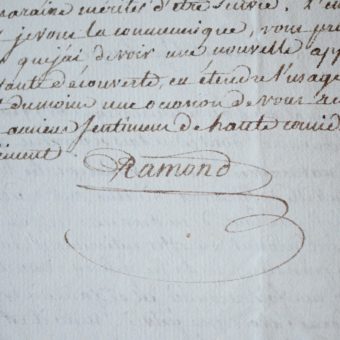 maraine mérite d'être suivie. L'en
je vous la communique, vous pr
que j'ai de voir une nouvelle app
découverte, en étendre l'usage
dumoins une occasion de vous re
anciens sentimens de haute consid
Ramond